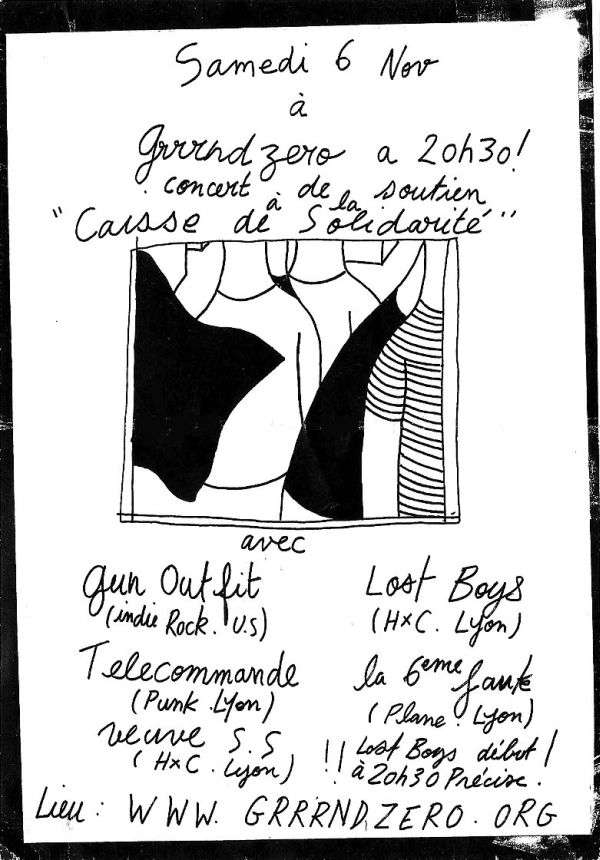 Samedi 6 Nov
à
Grrrndzero a 20h30!
concert de soutien
à la
"Caisse de Solidarité"
avec
Gun Outfit
(indie Rock. U.S)
Lost Boys
(HxC. Lyon)
Telecommande
(Punk Lyon)
la 6eme faute
(Plane. Lyon)
veuve S.S
(HxC. Lyon)
!! Lost Boys début !
à 20h30 Précise.
Lieu : WWW. GRRRNDZERO. ORG